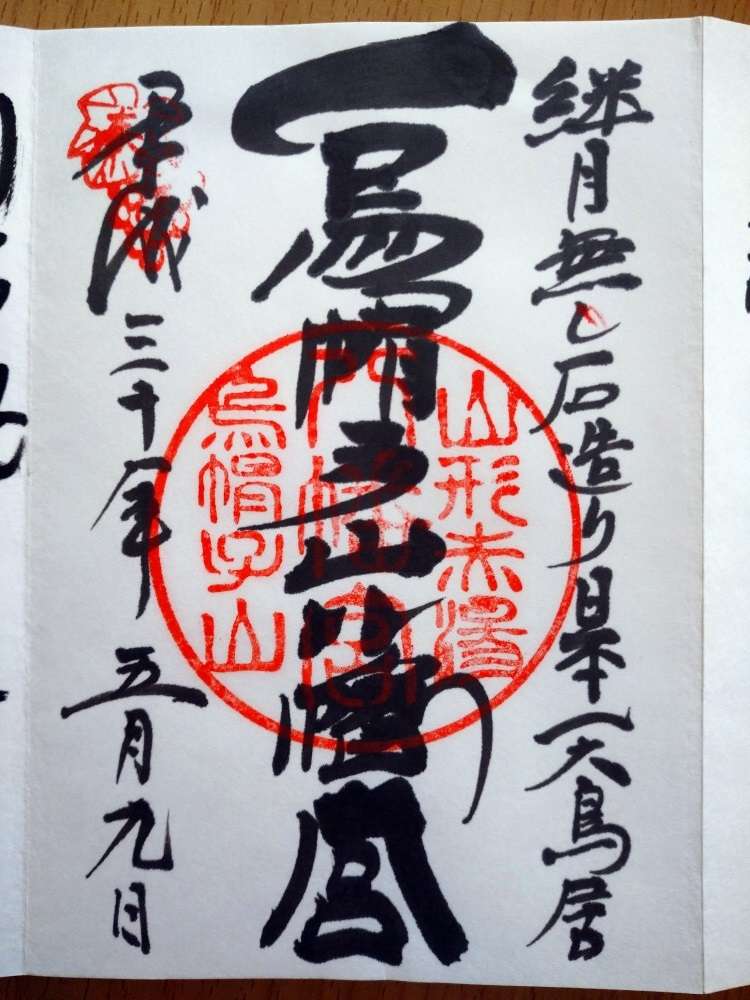 継目無し石造り日本一大鳥居
烏帽子山八幡宮
山形赤湯
八幡宮
烏帽子山
平成三十年五月九日